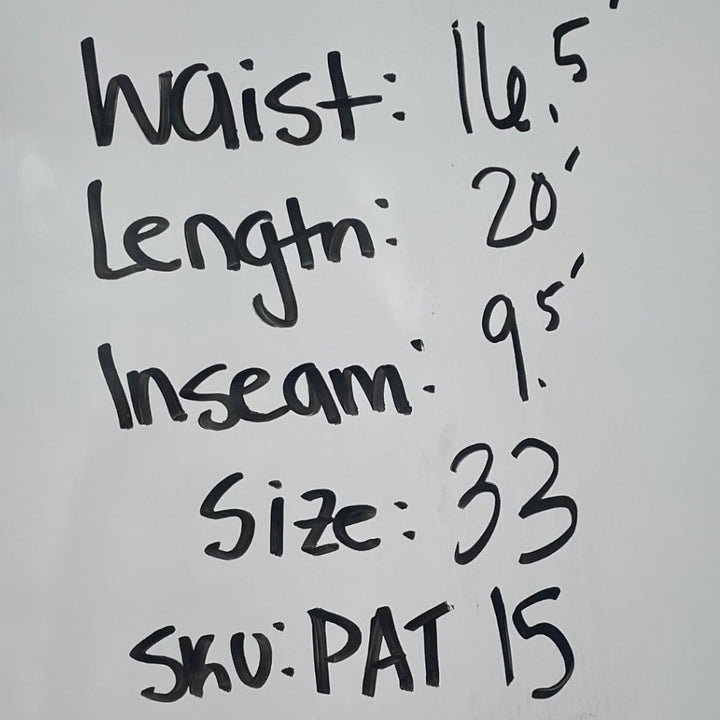 Waist: 16.5'
Length: 20'
Inseam: 9.5'
Size: 33
SKU: PAT 15